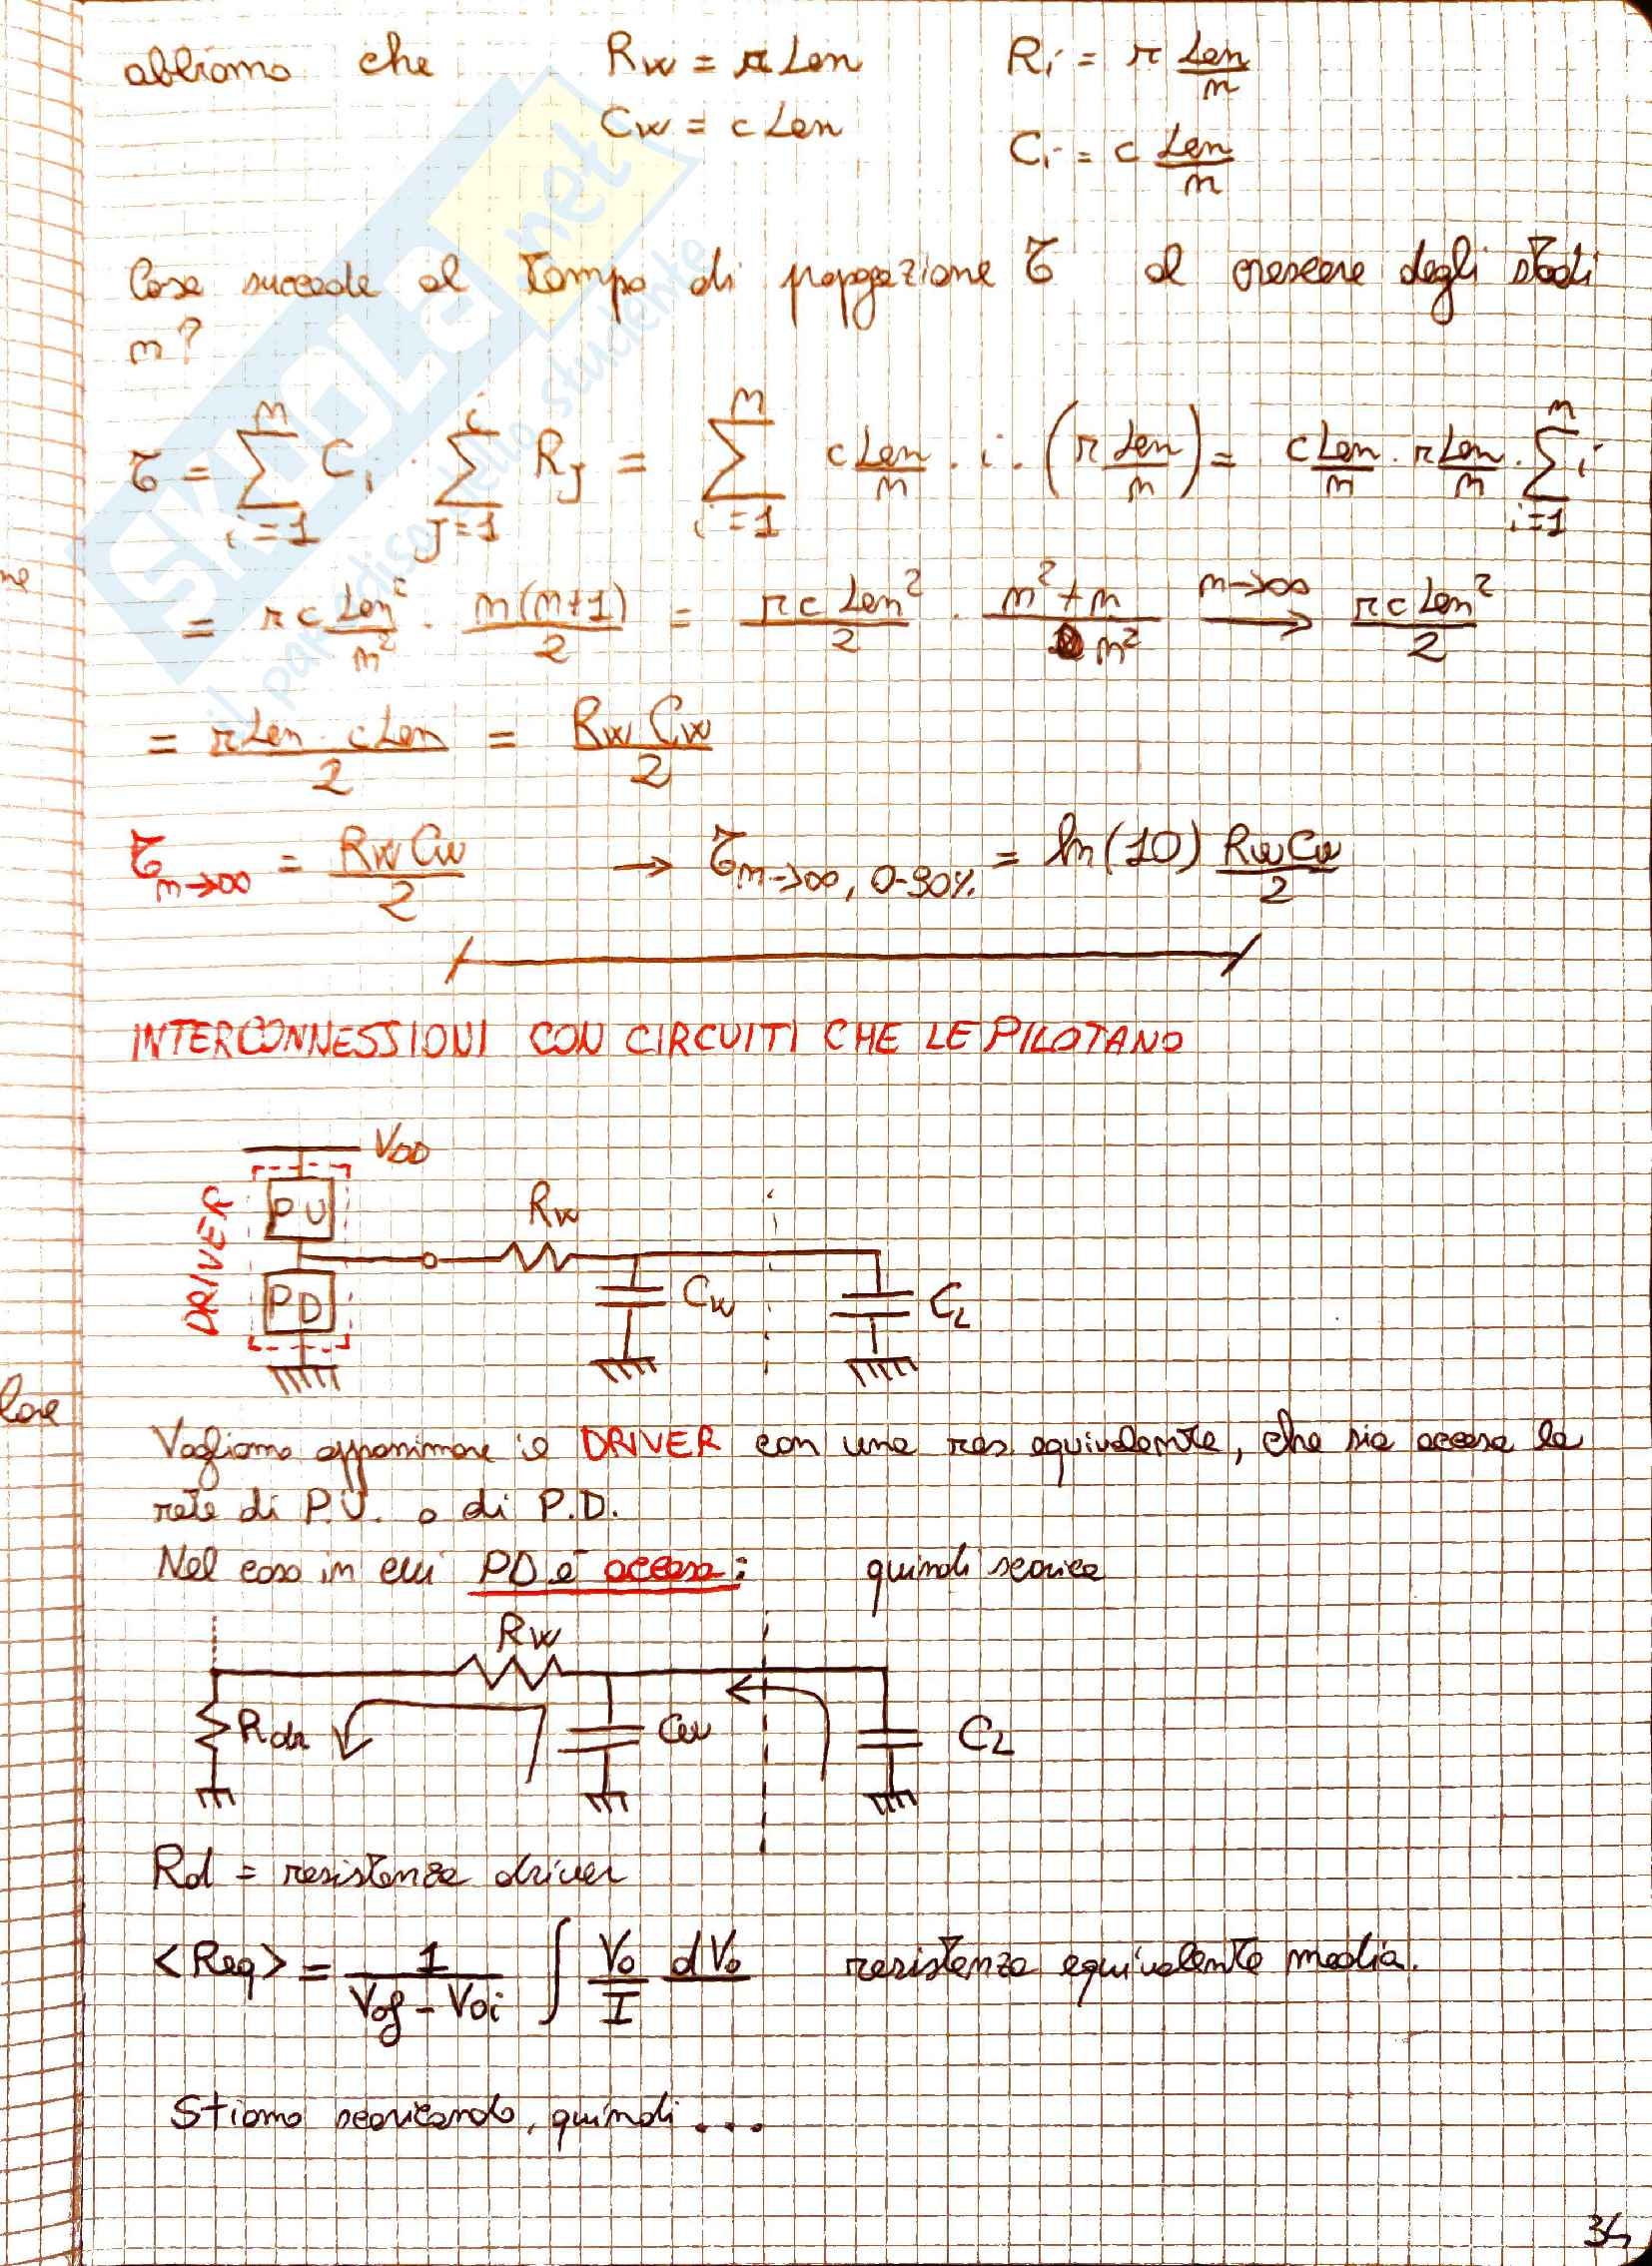 abbiamo che Rw = r Len Ri = r Len/n
Cw = c Len
Ci = c Len/n
Cosa succede al tempo di propagazione τ al crescere degli stadi
n?
τ = ∑_{i=1}^{n} Ci · ∑_{J=1}^{i} RJ = ∑_{i=1}^{n} c Len/n · i · (r Len/n) = c Len/n · r Len/n · ∑_{i=1}^{n} i
= rc Len²/n² · n(n+1)/2 = rc Len²/2 · n²+n/n² n→∞ → rc Len²/2
= r Len · c Len/2 = Rw Cw/2
τ n→∞ = Rw Cw/2 → τ n→∞, 0-90% = ln(10) Rw Cw/2
INTERCONNESSIONI CON CIRCUITI CHE LE PILOTANO
VDD
DRIVER
PU
Rw
PD
Cw
CL
Vogliamo approssimare il DRIVER con una res equivalente, che sia accesa la
rete di P.U. o di P.D.
Nel caso in cui PD è accesa: quindi scarica
Rw
Rdr
Cw
CL
Rd = resistenza driver
<Req> = 1/Vof - Voi ∫ Vo/I dVo resistenza equivalente media.
Stiamo scaricando, quindi...
34
ne
lore
SKUOLA.net
il paradiso dello studente